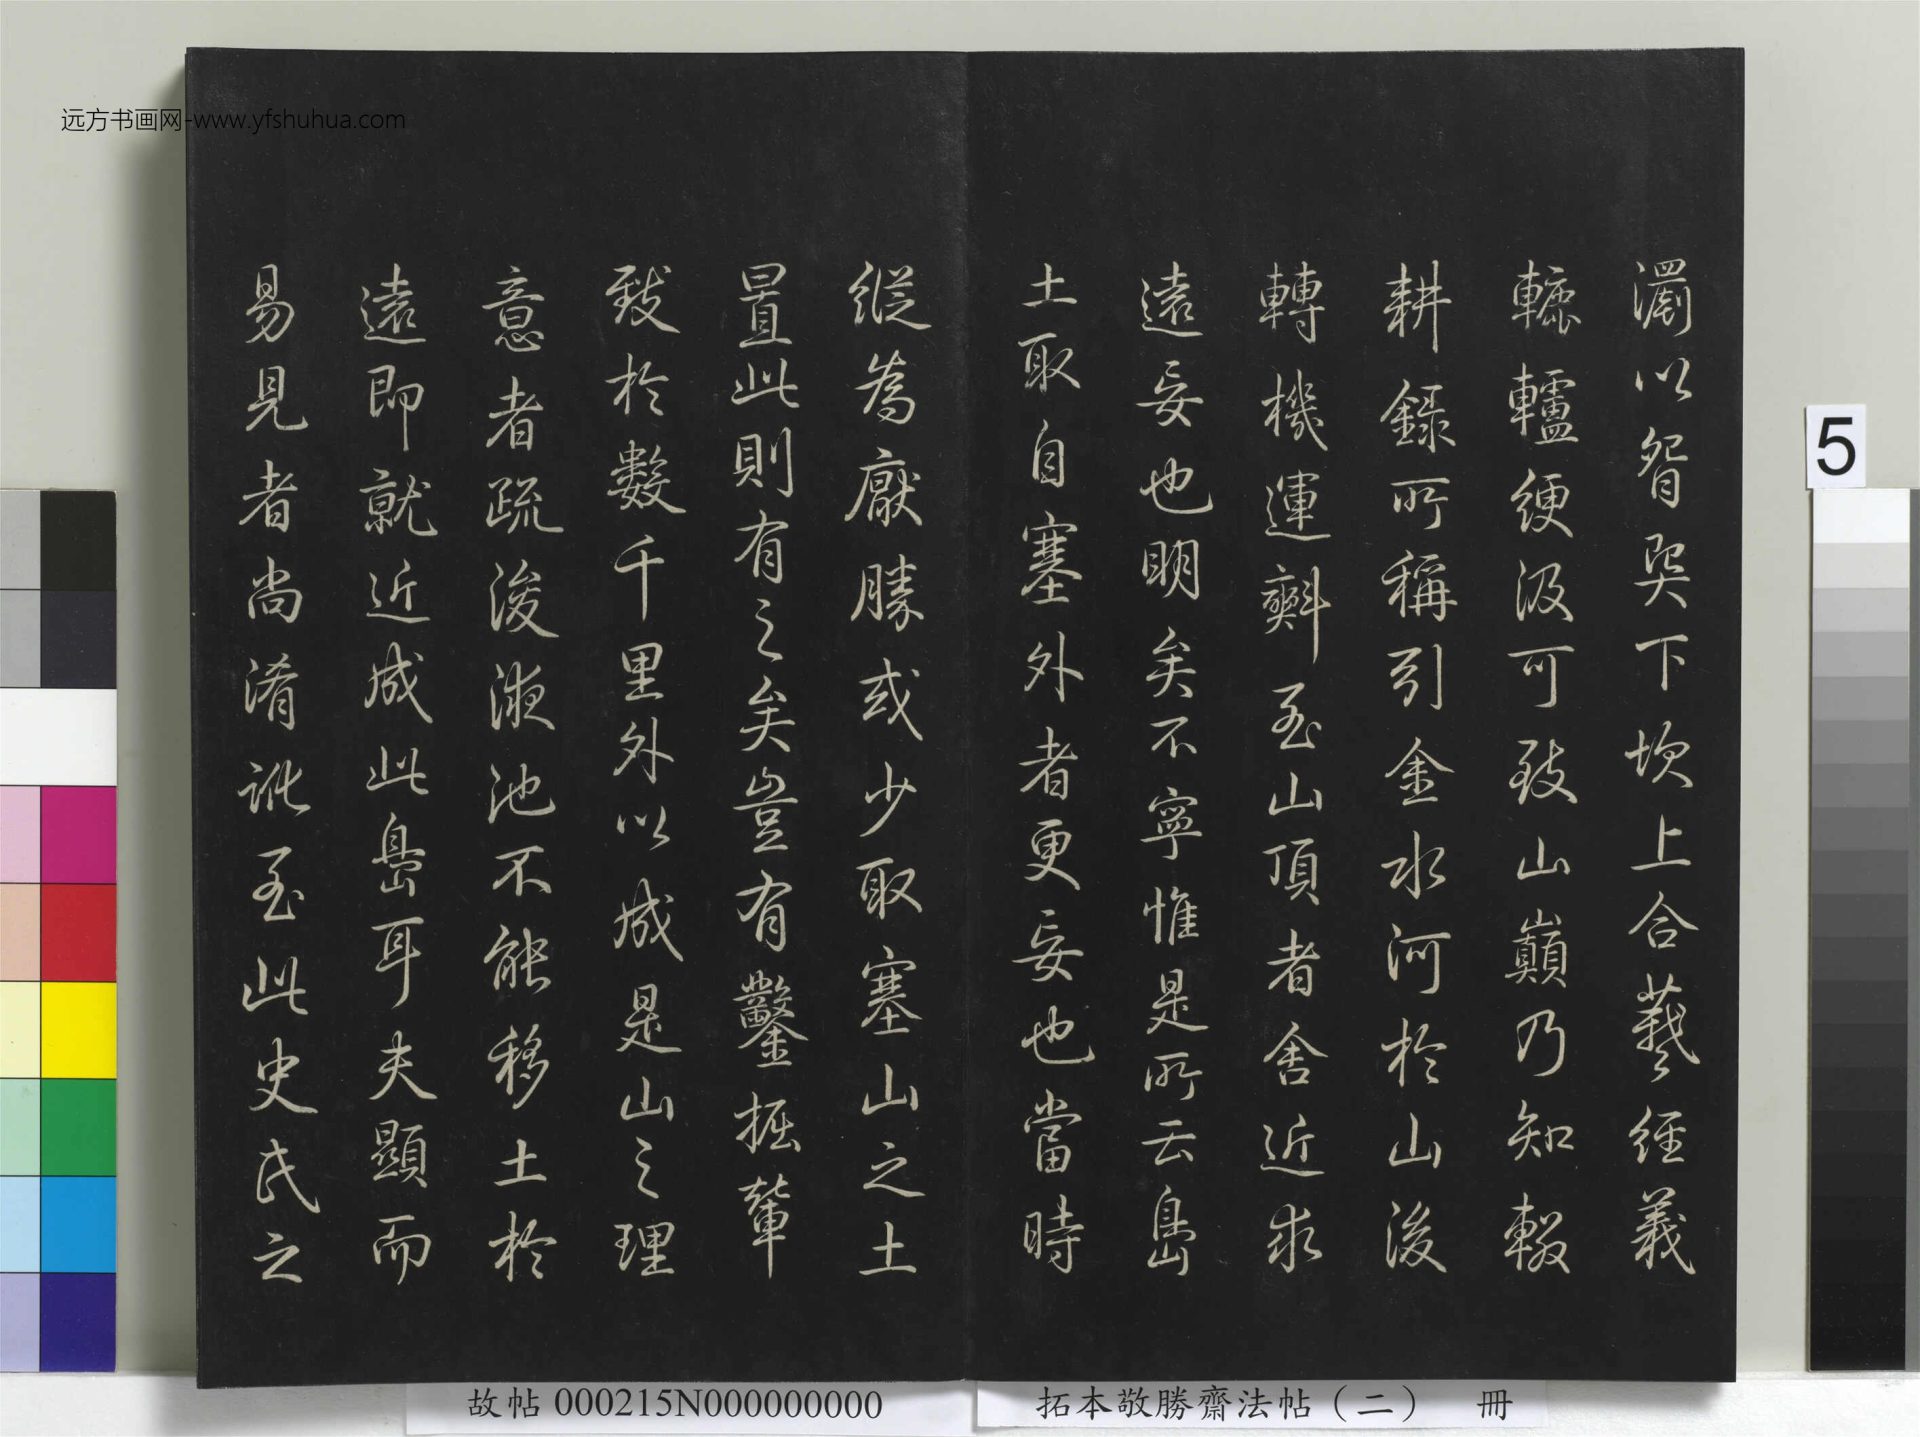 灍以眢巽下坎上合羲經義
轆轤綆汲可致山巔乃知輟
耕錄所稱引金水河於山後
轉機運㪺至山頂者舍近求
遠妄也明矣不寧惟是所云島
土取自塞外者更妄也當時
縱為厭勝或少取塞山之土
置此則有之矣豈有鑿掘輦
致於數千里外以成是山之理
意者疏浚液池不能移土於
遠即就近成此島耳夫顯而
易見者尚淆訛至此史氏之
远方书画网-www.yfshuhua.com
5
故帖 000215N000000000
拓本敬勝齋法帖（二） 冊